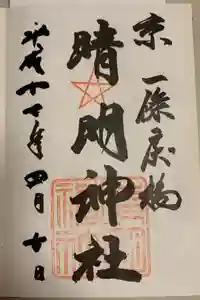 京一條戻橋
晴明神社
平成十七年四月十日